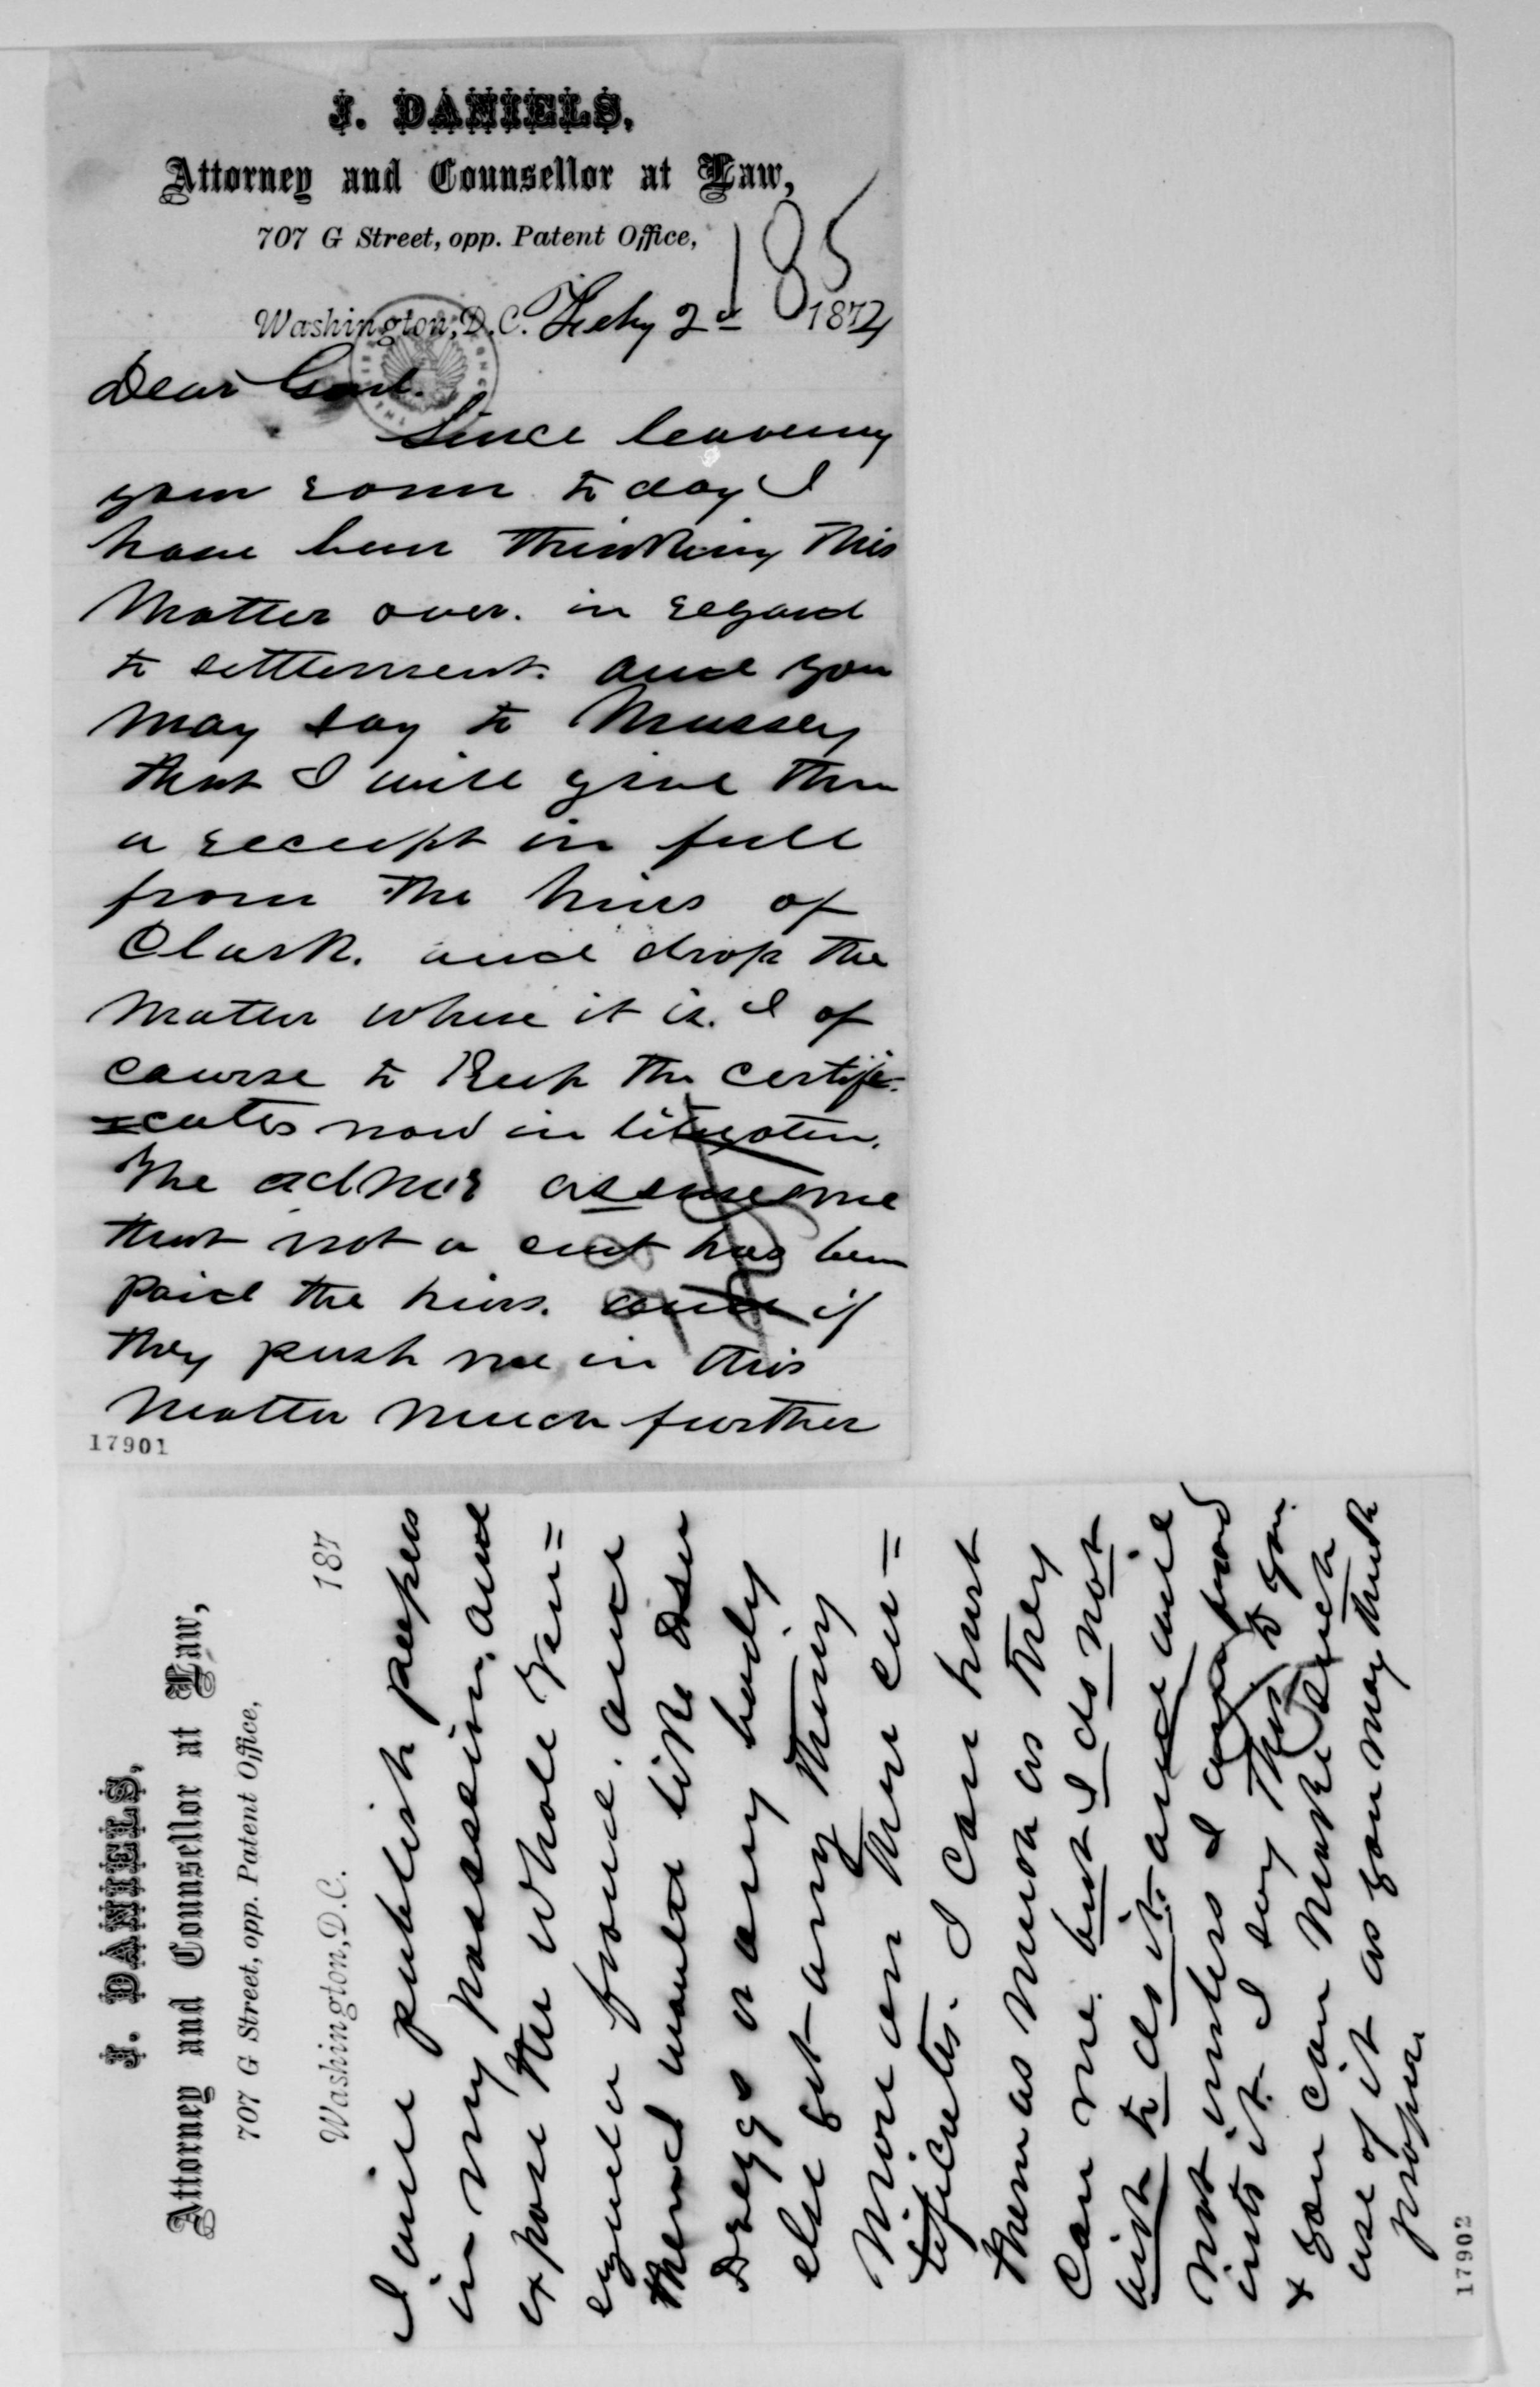 J. DANIELS,
Attorney and Counsellor at Law,
707 G Street, opp. Patent Office,
185
Washington, D.C. Feby 2d 1874
Dear Genl.
Since leaveing
your room to day I
have been thinking this
Matter over. in regard
to settlement. and you
May say to Mussey
that I will give them
a receipt in full
from the heirs of
Clark. and drop the
Matter where it is. I of
course to Keep the certifi-
=cates now in litigation.
The admor
that not a cent has been
paid the heirs. and if
they push me in this
Matter much further
17901
J. DANIELS,
Attorney and Counsellor at Law,
707 G Street, opp. Patent Office,
Washington, D.C. 187
I will publish papers
in my possession, and
expose the whole
from. and
would like
or any body
else get any thing
More on their cer=
tificates. I can hurt
them as much as they
can me. but I do not
wish to do it. and will
not unless I am forced
into it. I say this to you.
& you can make such
use of it as you may think
proper.
17902